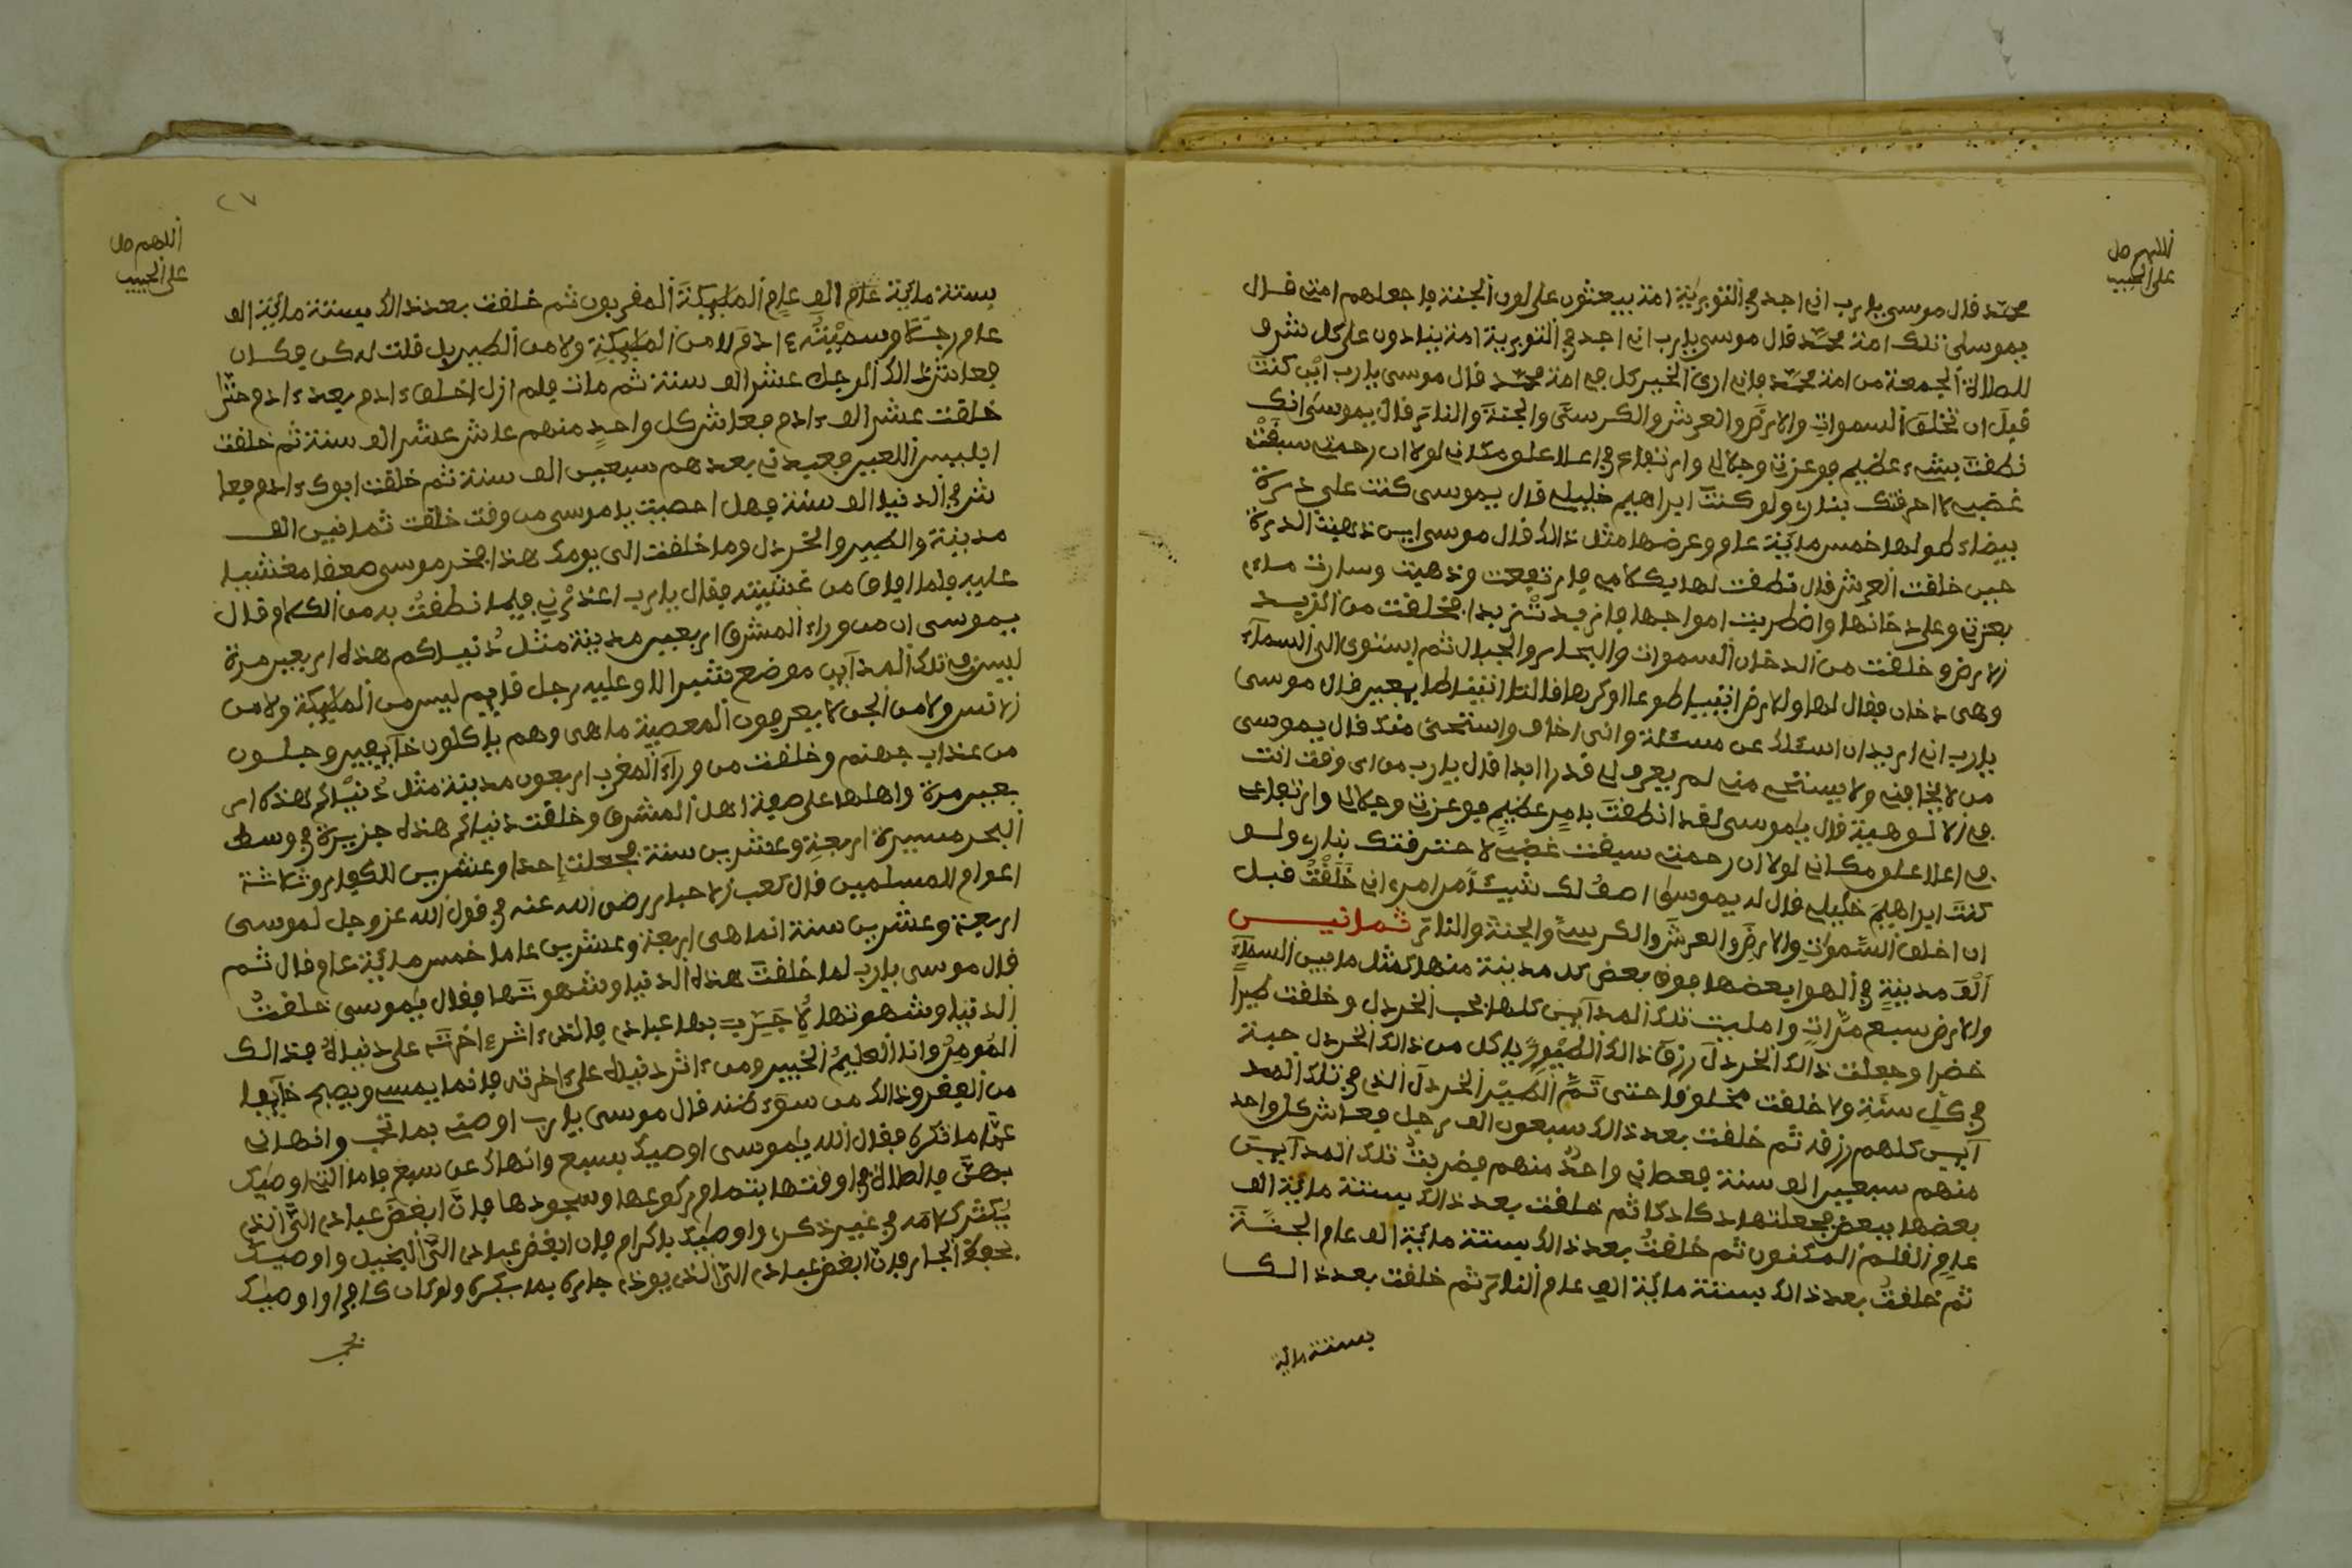 اللهم صل
على الحبيب
محمد فال موسى يارب اني اجد في التورية امة يبعثون على لون الجنة فاجعلهم امتي فال
يموسى تلك امة محمد فال موسى يارب اني اجد في التورية امة ينادون على كل شرف
للصلاة الجمعة من امة محمد فاني ارى الخير كل في امة محمد فال موسى يارب اين كنت
فبل ان تخلق السموات والارض والعرش والكرسي والجنة والنار فال يموسى انك
نطفت بشيء عظيم فوعزتي وجلالي وارتفاعي في اعلا علو مكاني لولا ان رحمتي سبفت
غضبي لاحرفتك بناري ولو كنت ابراهيم خليلي فال يموسى كنت على درة
بيضاء طولها خمس ماية عام وعرضها مثل ذالك فال موسى اين ذهبت الدرة
حين خلفت العرش فال نطفت لها بكلامي فارتعت وذهبت وسارت ماء
بعزتي وعلى دخانها واضطربت امواجها فازبدت زبدا فخلفت من الزبد
الارض وخلفت من الدخان السموات والبحار والجبال ثم استوى الى السماء
وهى دخان ففال لها وللارض ايتيا طوعا اوكرها فالتا اتينا طايعين فال موسى
يارب اني اريد ان اسئلك عن مسئلة واني اخاف واستحي منك فال يموسى
من لا يخافني ولا يستحي مني لم يعرف لي فدرا ابدا فال يارب من اى وفت انت
في الالوهية فال ياموسى لفد انطفت بامر عظيم فوعزتي وجلالي وارتفاعي
في اعلا علو مكاني لولا ان رحمتي سبفت غضبي لاحترفتك بناري ولو
كنت ابراهيم خليلي فال له يموسى اصف لك شيئا من امري اني خلفت فبل
ان اخلف السموات والارض والعرش والكرسي والجنة والنار ثمانيس
الف مدينة في الهوا بعضها فوف بعض كل مدينة منها كمثل ما بين السماء
والارض سبع مرات وامليت تلك المداين كلها بحب الخردل وخلفت طيرا
خضرا وجعلت ذالك الخردل رزف ذالك الطيور ياكل من ذالك الخردل حبة
في كل سنة ولا خلفت مخلوفا حتى تم الطير الخردل الذي في تلك المد
آين كلهم رزفه ثم خلفت بعد ذالك سبعون الف رجل فعاش كل واحد
منهم سبعين الف سنة فعصاني واحد منهم فضربت تلك المداين
بعضها ببعض فجعلتها دكا دكا ثم خلفت بعد ذالك بستة ماية الف
عام الفلم المكنون ثم خلفت بعد ذالك بستة ماية الف عام الجنة
ثم خلفت بعد ذالك بستة ماية الف عام النار ثم خلفت بعد ذالك
بستة ماية
٢٧
اللهم صل
على الحبيب
بستة ماية عام الف عام الملايكة المفربون ثم خلفت بعد ذالك بستة ماية الف
عام رجلا وسميته ءادم لا من الملايكة ولا من الطير بل فلت له كن فكان
فعاش ذالك الرجل عشر الف سنة ثم مات فلم ازل اخلف ءادم بعد ءادم حتى
خلفت عشر الف ءادم فعاش كل واحد منهم عاش عشر الف سنة ثم خلفت
ابليس اللعين فعبدني بعدهم سبعين الف سنة ثم خلفت ابوك ءادم فعا
ش في الدنيا الف سنة فهل احصيت ياموسى من وفت خلفت ثمانين الف
مدينة والطير والخردل وما خلفت الى يومك هذا فخر موسى صعفا مغشيا
عليه فلما افاف من غشيته ففال يارب اعذرني فيما نطفت به من الكلام وفال
يموسى ان من وراء المشرف اربعين مدينة مثل دنياكم هذه اربعين مرة
ليس في تلك المداين موضع شبر الا وعليه رجل فايم ليس من الملايكة ولا من
الانس ولا من الجن لا يعرفون المعصية ما هى وهم ياكلون خآيفين وجلون
من عذاب جهنم وخلفت من وراء المغرب اربعون مدينة مثل دنياكم هذه ار
بعين مرة واهلها على صفة اهل المشرف وخلفت دنياكم هذه جزيرة في وسط
البحر مسيرة اربعة وعشرين سنة فجعلت احدا وعشرين للكفار وثلاثة
اعوام للمسلمين فال كعب الاحبار رضي الله عنه في فول الله عز وجل لموسى
اربعة وعشرين سنة انما هى اربعة وعشرين عاما خمس ماية عام وفال ثم
فال موسى يارب لما خلفت هذه الدنيا وشهوتها ففال ياموسى خلفت
الدنيا وشهوتها لاجرب بها عبادي فالذي ءاثر ءاخرته على دنياه فذالك
المومن وانا العليم الخبير ومن ءاثر دنياه على ءاخرته فانما يمسي ويصبح خآيفا
من الفقر وذالك من سوء ظنه فال موسى يارب اوصني بما تحب وانهاني
عما تكره ففال الله ياموسى اوصيك بسبع وانهاك عن سبع فاما التي اوصيك
بهن فالصلاة في اوفتها بتمام ركوعها وسجودها فان ابغض عبادي الى الذي
يكثر كلامه في غير ذكري واوصيك باكرام فان ابغض عبادي الى البخيل واوصيك
بحف الجار فان ابغض عبادي الى الذي يوذي جاره بما يكره ولو كان كافرا واوصيك